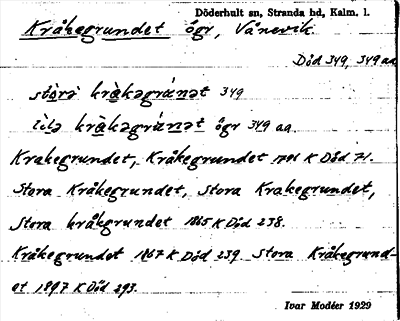 Döderhult sn, Stranda hd, Kalm. l.
Kråkegrundet ögr, Vånevik.
Död 349, 349 aa
stòrə kràkəgrúnət 349
lìlə kràkəgrúnət ögr 349 aa.
Krakegrundet, Kråkegrundet 1796 K Död 71.
Stora Kråkegrundet, Stora Krakegrundet,
Stora kråkgrundet 1865 K Död 238.
Kråkegrundet 1867 K Död 239. Stora Kråkegrund-
et 1897 K Död 293.
Ivar Modéer 1929